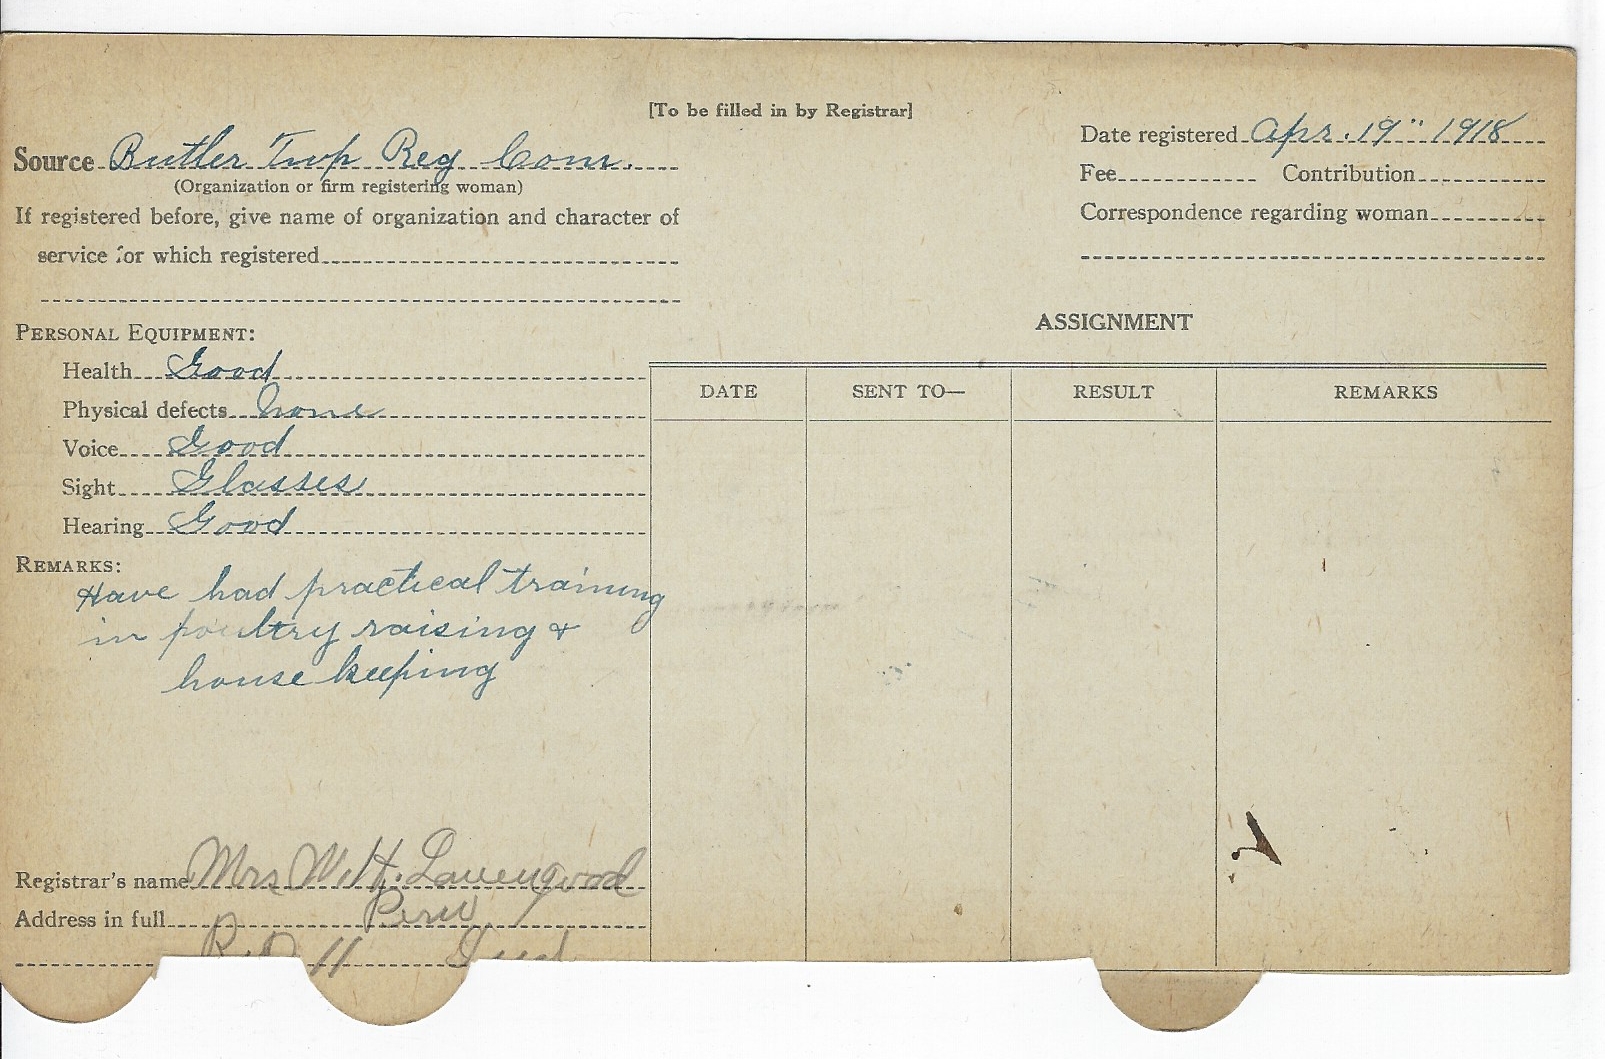 [To be filled in by Registrar]
Source Butler Twp Reg Com.
(Organization or firm registering woman)
If registered before, give name of organization and character of
service for which registered
Date registered Apr. 19" 1918
Fee Contribution
Correspondence regarding woman
PERSONAL EQUIPMENT:
Health Good
Physical defects None
Voice Good
Sight Glasses
Hearing Good
REMARKS:
Have had practical training
in poultry raising &
house keeping
Registrar's name Mrs W. H. Lavengood
Address in full Peru
R. D. 11 Ind
ASSIGNMENT
DATE SENT TO— RESULT REMARKS